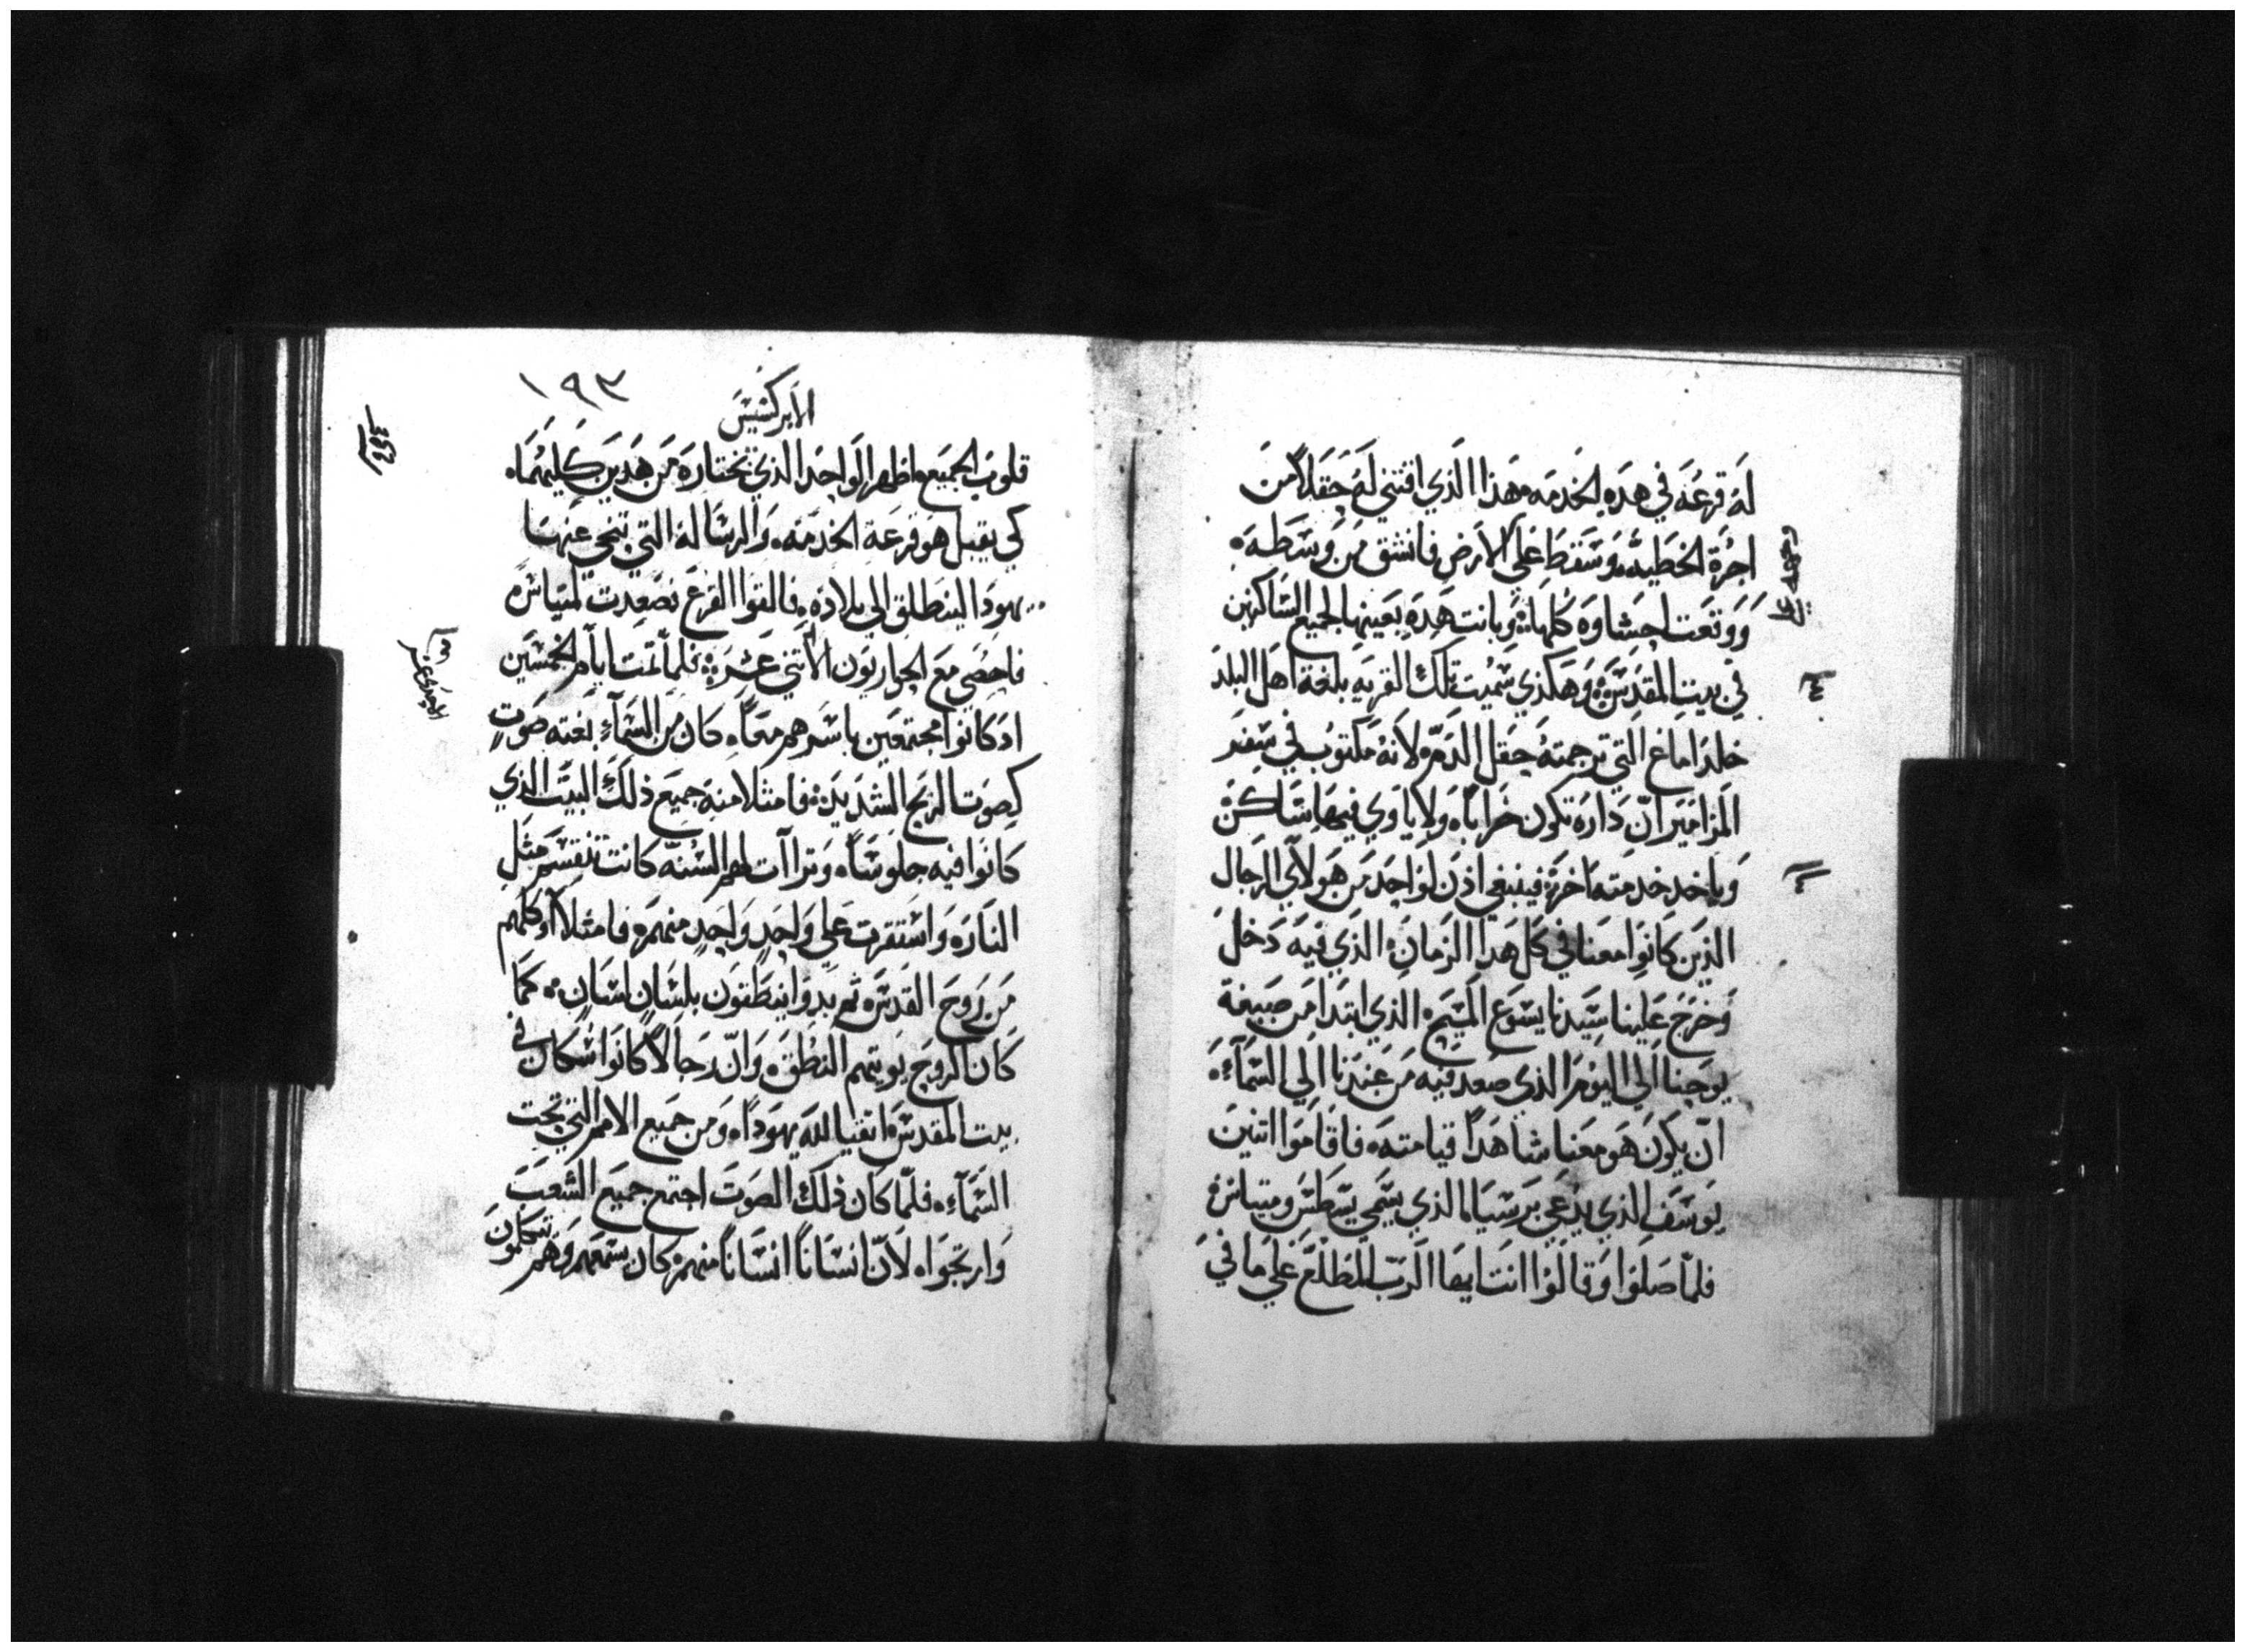 له قرعه في هده الخدمه هذا الذي اقتني له حقلاً من
اجرة الخطيه وسقط علي الارض فانشق من وسطه
ووقعت احشاوه كلها وبانت هده بعينها لجميع الساكنين
في بيت المقدس وهكذي سميت تلك القريه بلغة اهل البلد
حلداماغ التي ترجمته حقل الدم لانه مكتوب في سفر
المزامير انّ داره تكون خراباً ولا ياوي فيها ساكن
وياخد خدمته اخر فينبغي اذن لواحد من هولاي الرجال
الذين كانوا معنا في كل هدا الزمان الذي فيه دخل
وخرج علينا سيدنا يسوع المسيح الذي ابتدا من صبيغة
يوحنا الي اليوم الذي صعد فيه من عندنا الي السمآء
انّ يكون هو معنا شاهداً قيامته فاقاموا اتنين
يوسف الذي يدعي برسيا الذي يسمي يسطس ومتياس
فلمّا صلوا وقالوا انت ايها الرب المطلع علي ما في
١٩٣
الابركسيس
قلوب الجميع اظهر الواحد الذي تختاره من هدين كليهما
كي يقبل هو قرعة الخدمه والرسالة التي تنحي عنها
يهودا لينطلق الي بلاده فالقوا القرع فصعدت لمتياس
فاحصي مع الحواريون الاتني عشرة فلما تمت ايام الخمسين
اد كانوا مجتمعين باسرهم معاً كان من السمآء بغته صوت
كصوت الريح الشديدة فامتلا منه جميع ذلك البيت الذي
كانوا فيه جلوساً وتراآت لهم السنه كانت تنقسم مثل
النار واستقرت علي واحدٍ واحدٍ منهم فامتلاوا كلهم
من روح القدس ثم بدوا ينطقون بلسانٍ لسانٍ كما
كان الروح يويتهم النطق وانّ رجالاً كانوا سكان في
بيت المقدس اتقيا لله يهوداً ومن جميع الامم التي تحت
السمآء فلمّا كان ذلك الصوت اجتمع جميع الشعب
وارتجوا لانّ انساناً انساناً منهم كان يسمعهم وهم تتكلمون